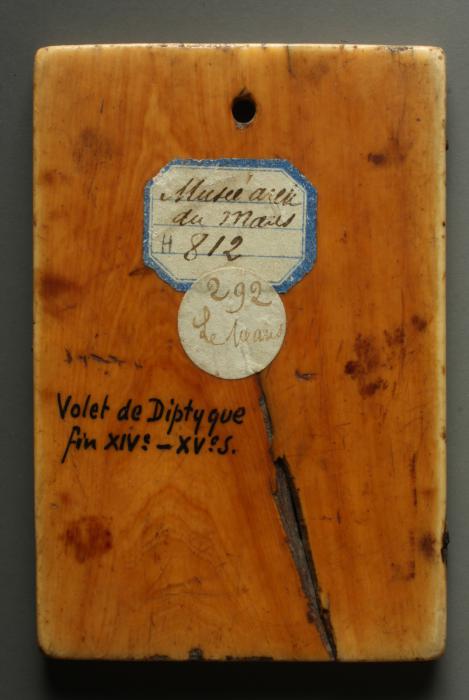 Musée arch
du Mans
H 812
292
Le Mans
Volet de Diptyque
fin XIVe - XVe s.